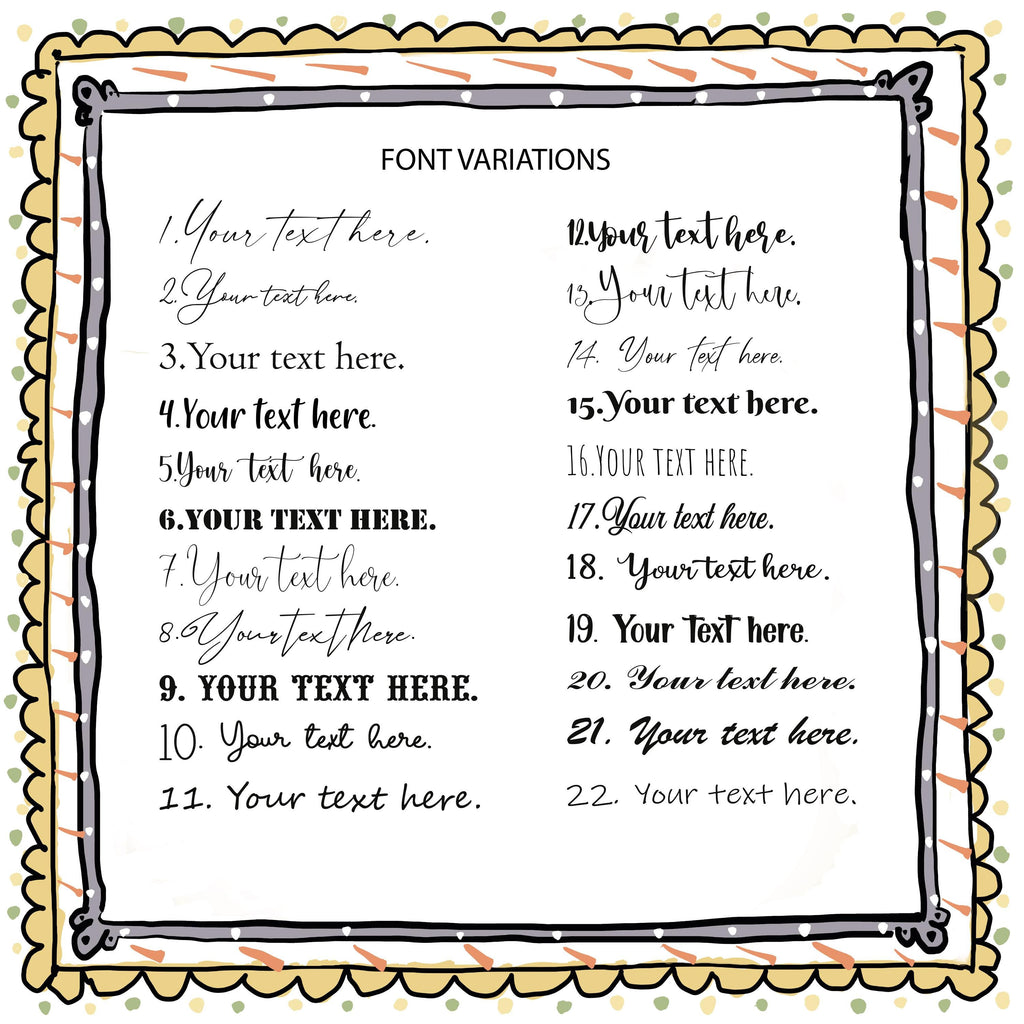 FONT VARIATIONS
1.Your text here.
2.Your text here.
3.Your text here.
4.Your text here.
5.Your text here.
6.YOUR TEXT HERE.
7.Your text here.
8.Your text here.
9. YOUR TEXT HERE.
10. Your text here.
11. Your text here.
12.Your text here.
13.Your text here.
14. Your text here.
15.Your text here.
16.YOUR TEXT HERE.
17.Your text here.
18. Your text here.
19. Your Text here.
20. Your text here.
21. Your text here.
22. Your text here.